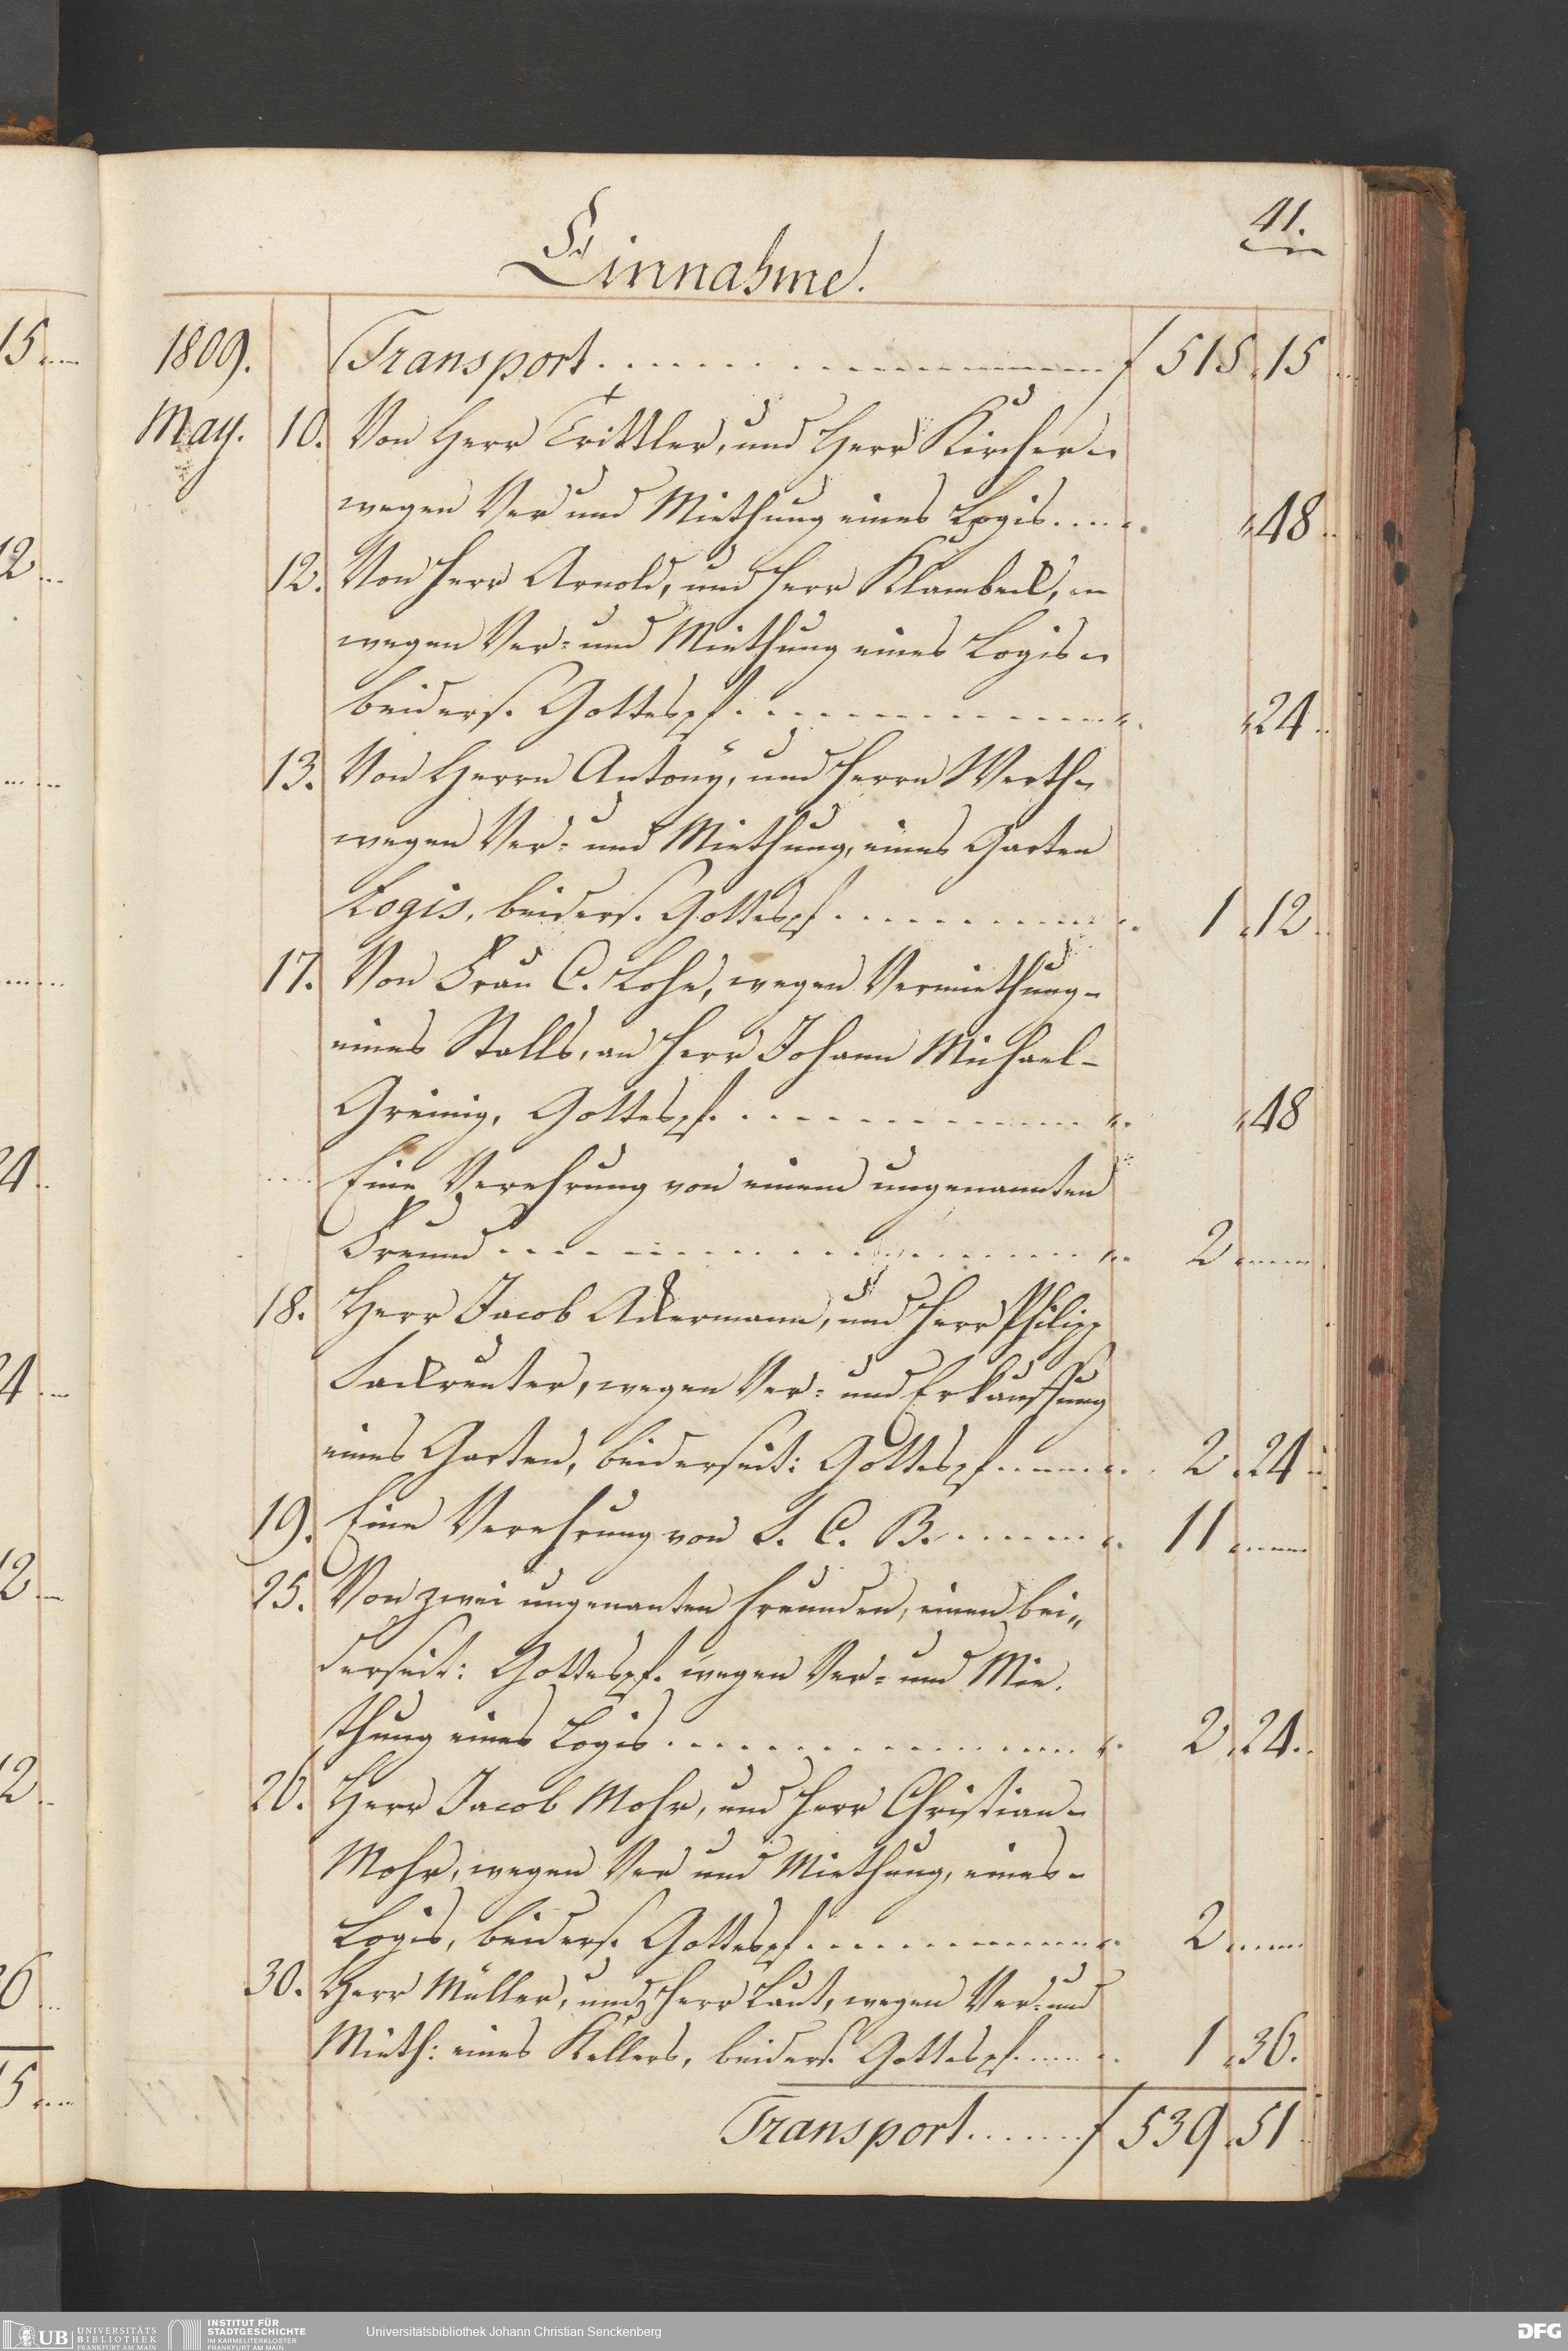 41.
Einnahme.
1809. Transport . . . . . . . . . . f 515 " 15
May. 10. Von Herr Trittler, und Herr Kircher
wegen Ver und Miethung eines Logis . . . . " 48
12. Von Herr Arnold, und Herr Klambeck,
wegen Ver= und Miethung eines Logis
beiders. Gottespf. . . . . . . . . . " 24
13. Von Herrn Antony, und Herrn Werth
wegen Ver= und Miethung, eines Garten
Logis, beiders. Gottespf. . . . . . . . 1 " 12
17. Von Frau C. Lohr, wegen Vermiethung
eines Stalls, an Herr Johann Michael
Greinig, Gottespf. . . . . . . . . . " 48
Eine Verehrung von einem ungenannten
Freund . . . . . . . . . . . . 2
18. Herr Jacob Ackermann, und Herr Philipp
Sackreuter, wegen Ver= und Erkauffung
eines Garten, beiderseit: Gottespf. . . . . 2 " 24
19. Eine Verehrung von S. C. B. . . . . . 11
25. Von zwei ungenanten Freunden, einen bei„
derseit: Gottespf. wegen Ver= und Mie.
thung eines Logis . . . . . . . . . 2 " 24
26. Herr Jacob Mohr, und Herr Christian
Mohr, wegen Ver und Miethung, eines
Logis, beiders. Gottespf. . . . . . . . 2
30. Herr Müller, und Herr Laut, wegen Ver= und
Mieth: eines Kellers, beiders. Gottespf. . . . 1 " 36.
Transport . . . . . f 539 " 51
UB UNIVERSITÄTS
BIBLIOTHEK
FRANKFURT AM MAIN
INSTITUT FÜR
STADTGESCHICHTE
IM KARMELITERKLOSTER
FRANKFURT AM MAIN
Universitätsbibliothek Johann Christian Senckenberg
DFG